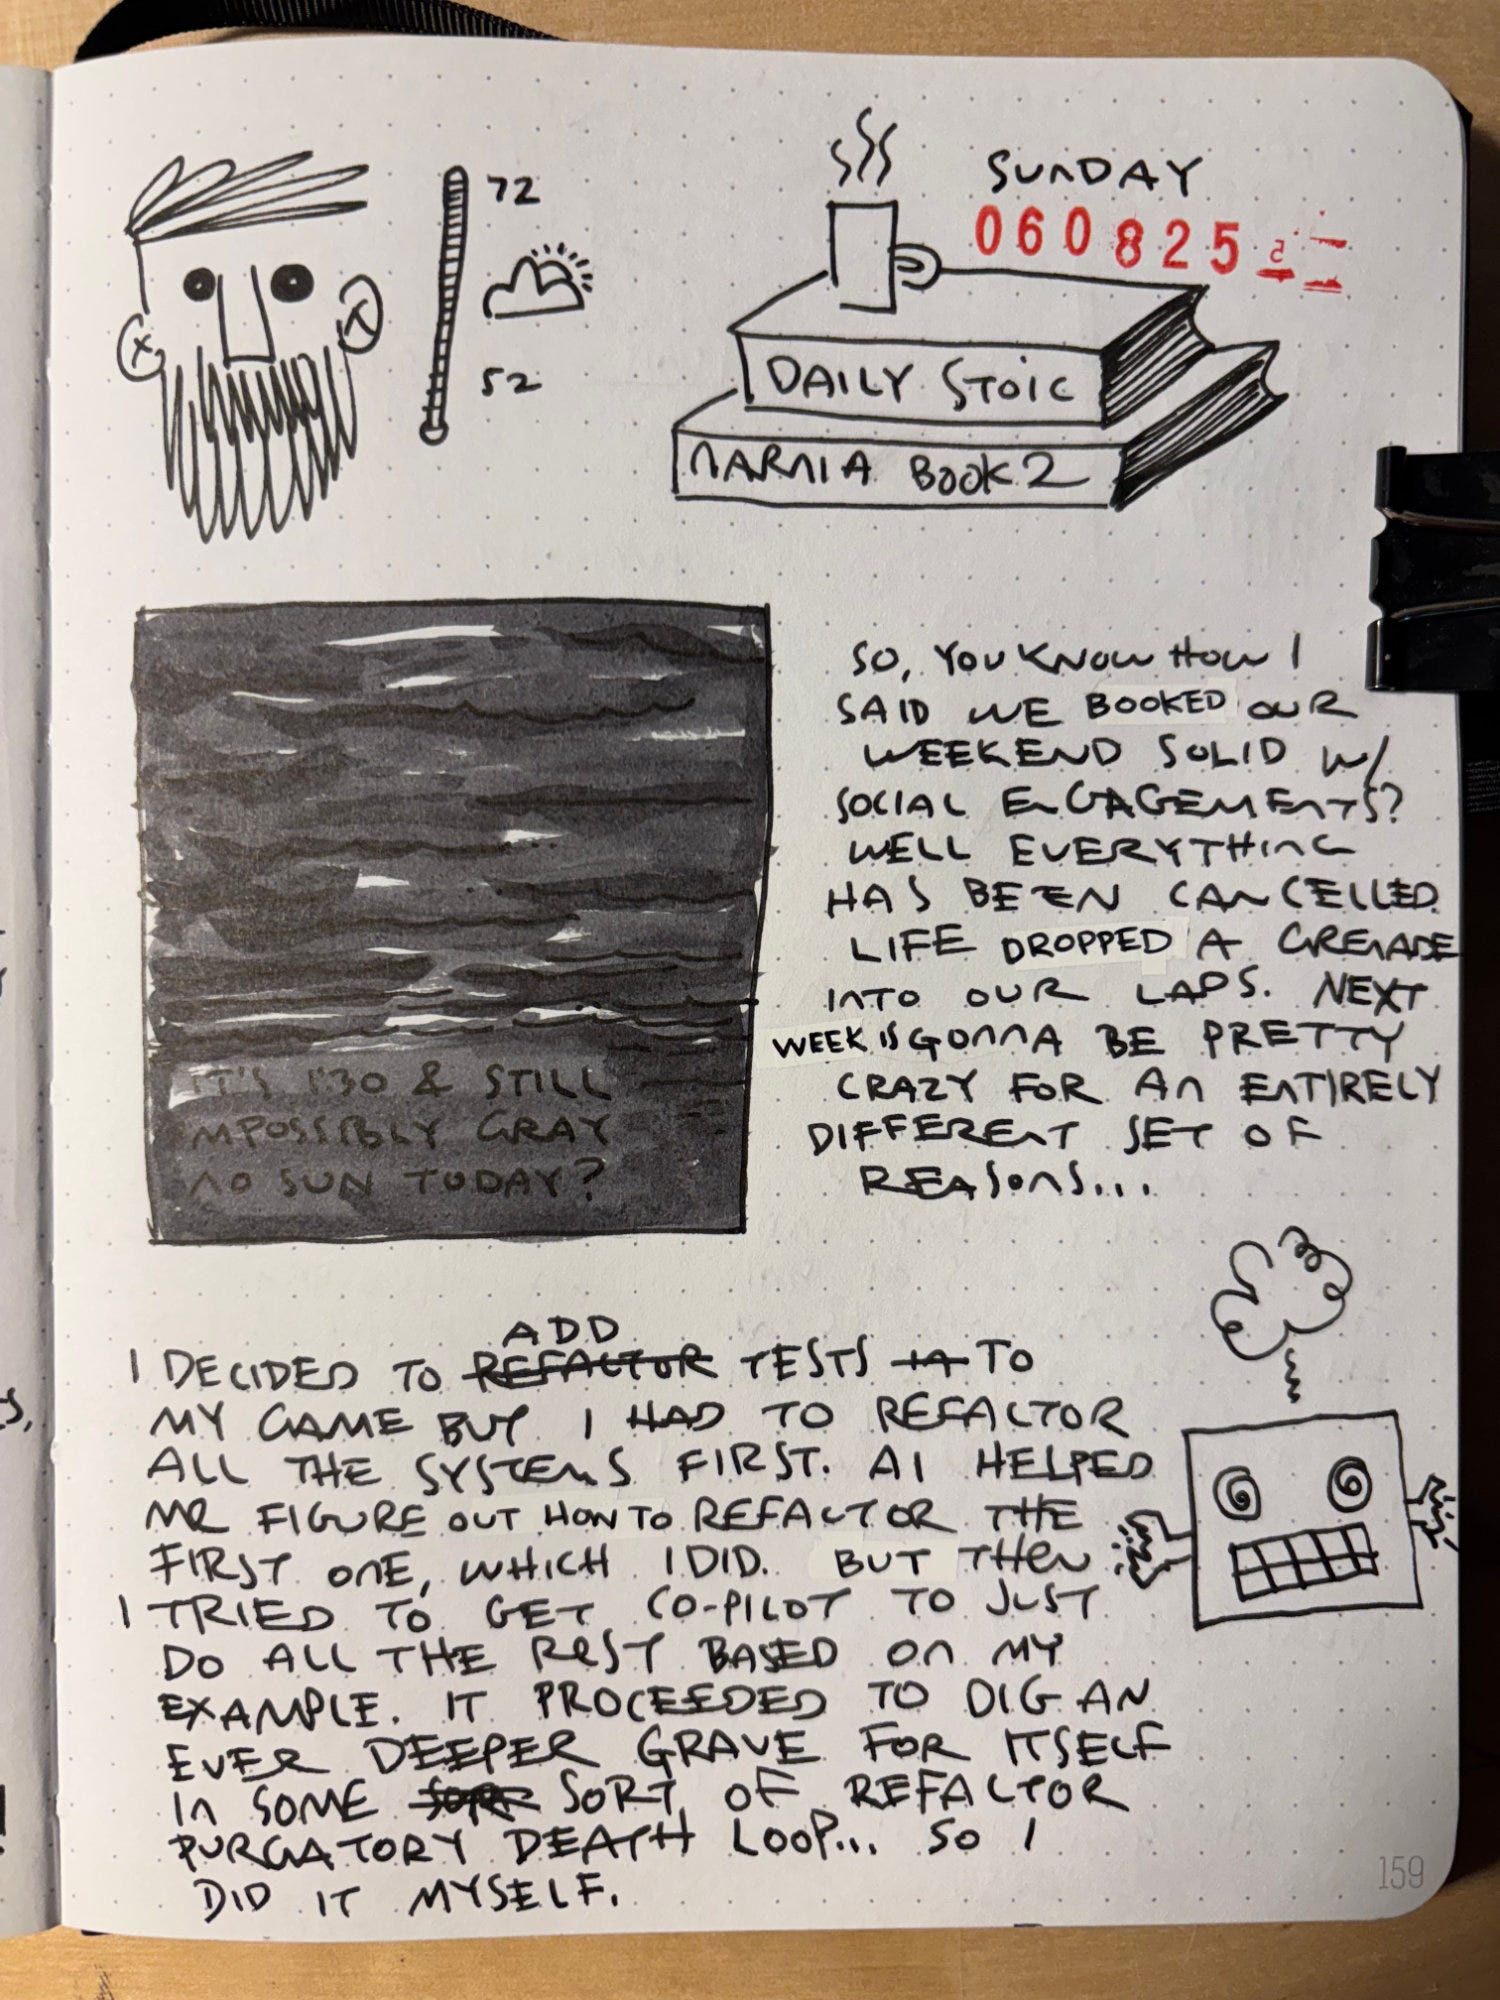 72
52
SUNDAY
060825
DAILY STOIC
NARNIA BOOK 2
SO, YOU KNOW HOW I
SAID WE BOOKED OUR
WEEKEND SOLID W/
SOCIAL ENGAGEMENTS?
WELL EVERYTHING
HAS BEEN CANCELLED.
LIFE DROPPED A GRENADE
INTO OUR LAPS. NEXT
WEEK IS GONNA BE PRETTY
CRAZY FOR AN ENTIRELY
DIFFERENT SET OF
REASONS...
IT'S 1:30 & STILL
IMPOSSIBLY GRAY
NO SUN TODAY?
ADD
I DECIDED TO REFACTOR TESTS IN TO
MY GAME BUT I HAD TO REFACTOR
ALL THE SYSTEMS FIRST. AI HELPED
ME FIGURE OUT HOW TO REFACTOR THE
FIRST ONE, WHICH I DID. BUT THEN
I TRIED TO GET CO-PILOT TO JUST
DO ALL THE REST BASED ON MY
EXAMPLE. IT PROCEEDED TO DIG AN
EVER DEEPER GRAVE FOR ITSELF
IN SOME SORT OF REFACTOR
PURGATORY DEATH LOOP... SO I
DID IT MYSELF.
159